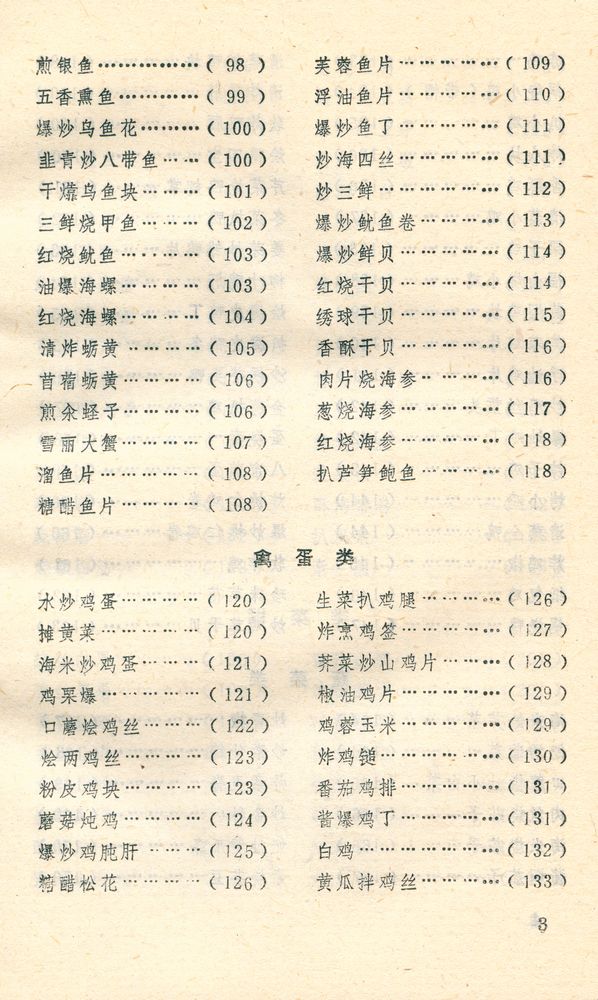 煎银鱼……………(98)
五香熏鱼…………(99)
爆炒乌鱼花………(100)
韭青炒八带鱼……(100)
干㸆乌鱼块………(101)
三鲜烧甲鱼………(102)
红烧鱿鱼…………(103)
油爆海螺…………(103)
红烧海螺…………(104)
清炸蛎黄…………(105)
苜蓿蛎黄…………(106)
煎汆蛏子…………(106)
雪丽大蟹…………(107)
溜鱼片……………(108)
糖醋鱼片…………(108)
芙蓉鱼片……………(109)
浮油鱼片……………(110)
爆炒鱼丁……………(111)
炒海四丝……………(111)
炒三鲜………………(112)
爆炒鱿鱼卷…………(113)
爆炒鲜贝……………(114)
红烧干贝……………(114)
绣球干贝……………(115)
香酥干贝……………(116)
肉片烧海参…………(116)
葱烧海参……………(117)
红烧海参……………(118)
扒芦笋鲍鱼…………(118)
禽蛋类
水炒鸡蛋…………(120)
摊黄菜……………(120)
海米炒鸡蛋………(121)
鸡栗爆……………(121)
口蘑烩鸡丝………(122)
烩两鸡丝…………(123)
粉皮鸡块…………(123)
蘑菇炖鸡…………(124)
爆炒鸡肫肝………(125)
糖醋松花…………(126)
生菜扒鸡腿…………(126)
炸烹鸡签……………(127)
荠菜炒山鸡片………(128)
椒油鸡片……………(129)
鸡蓉玉米……………(129)
炸鸡鎚………………(130)
番茄鸡排……………(131)
酱爆鸡丁……………(131)
白鸡…………………(132)
黄瓜拌鸡丝…………(133)
3